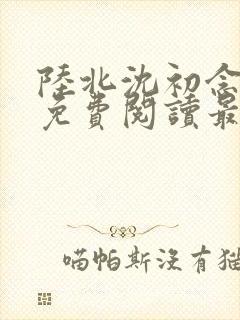 陸北沈初念
免費閱讀最
喵帕斯沒有貓